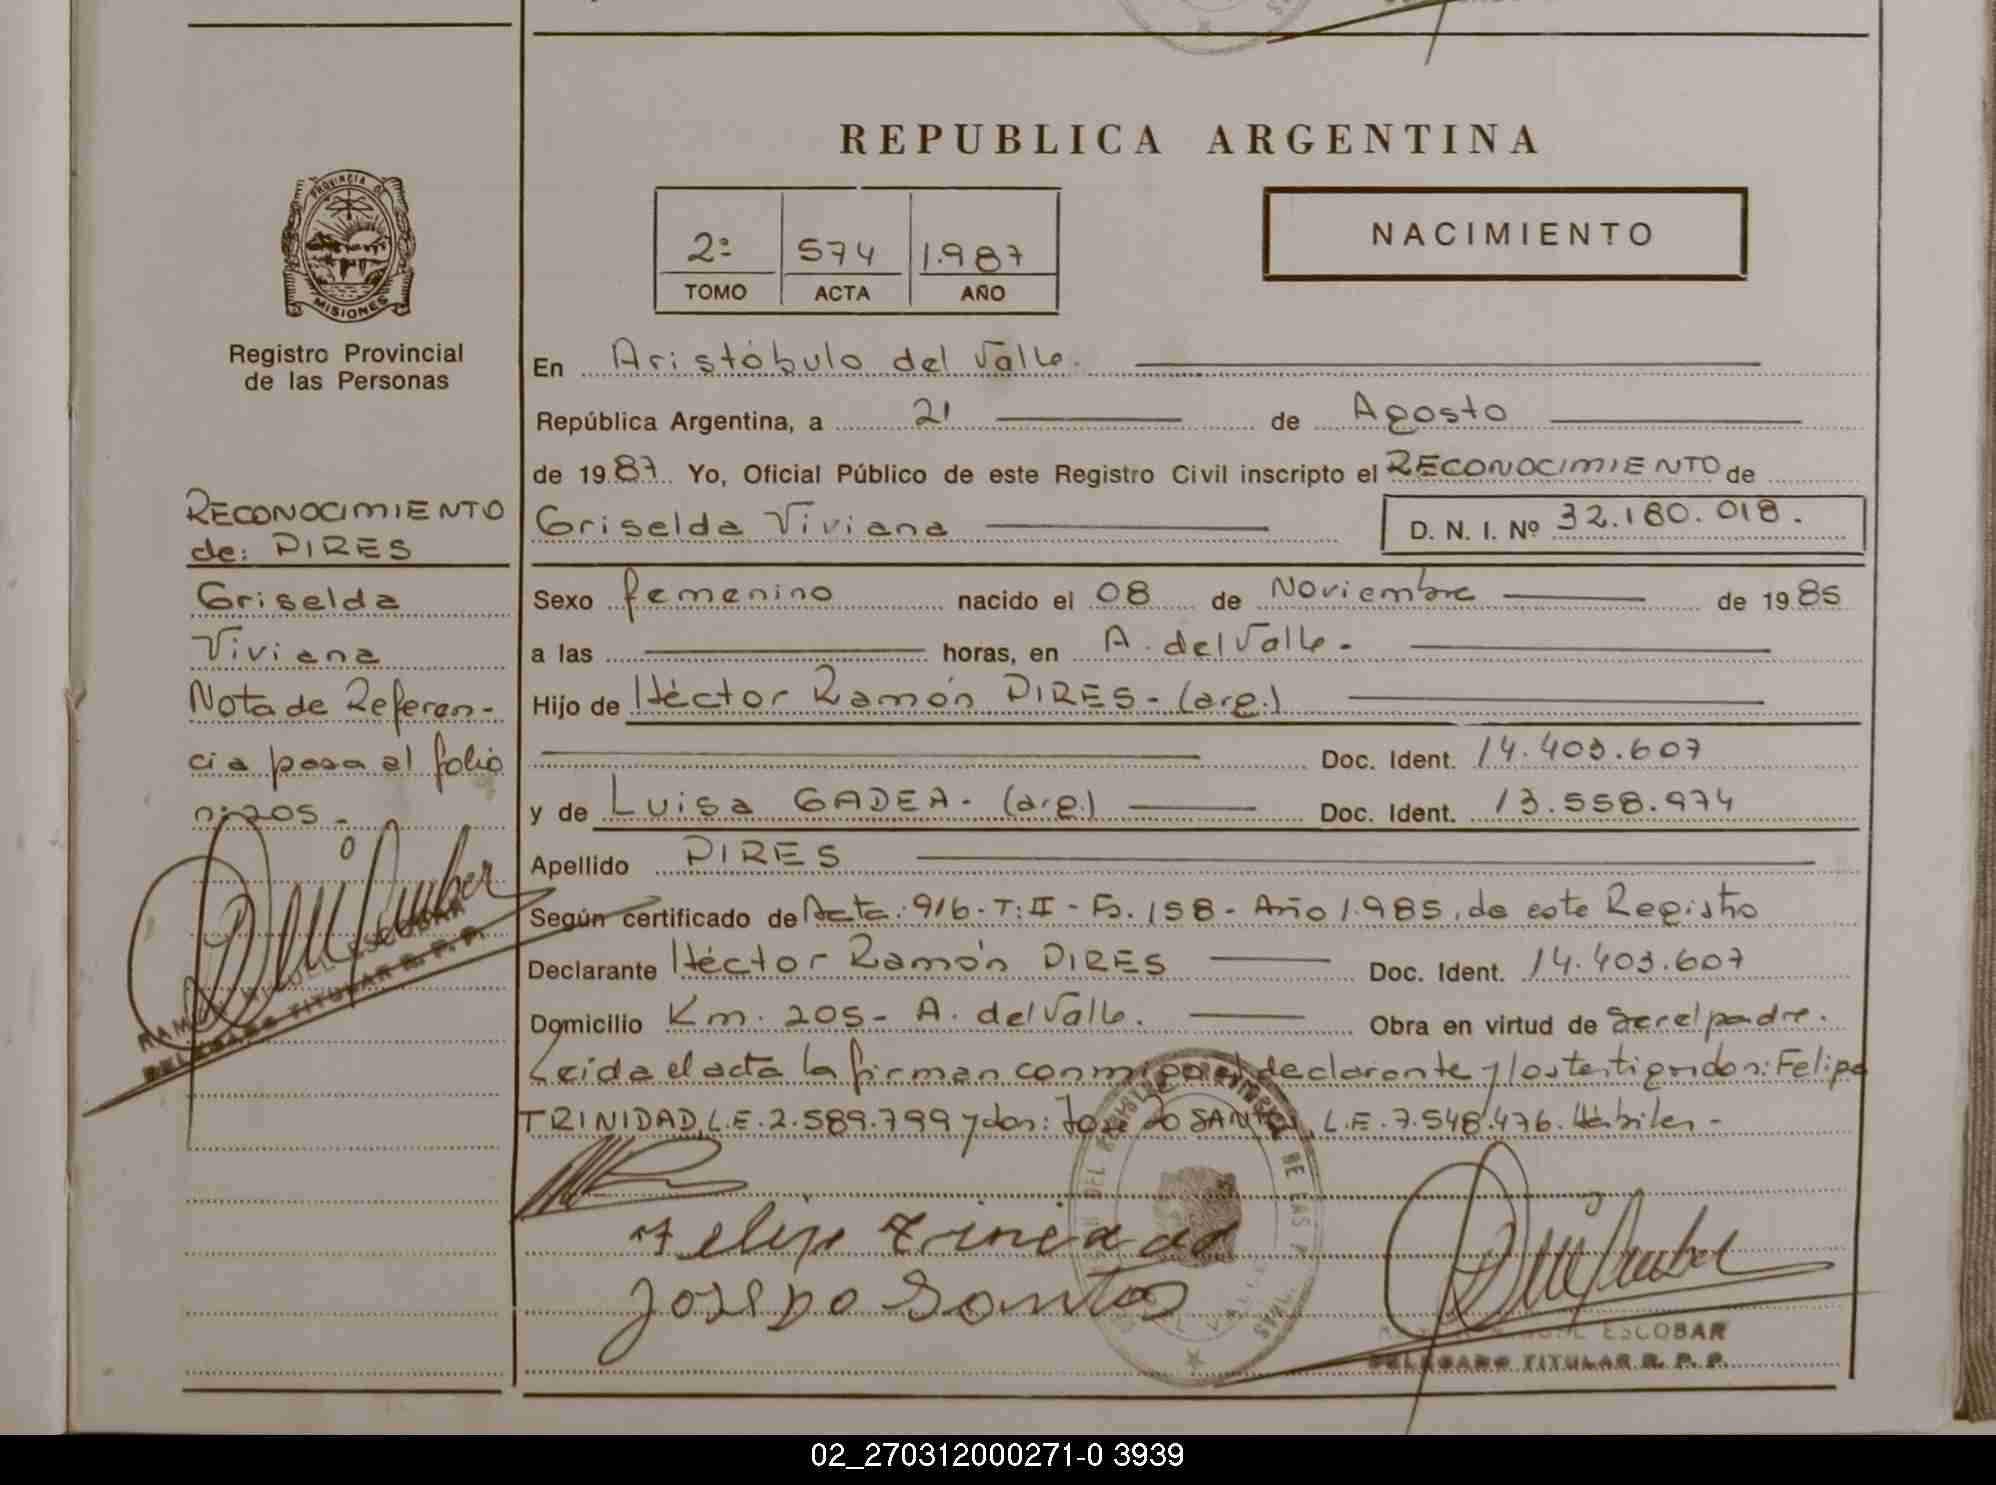 REPUBLICA ARGENTINA
PROVINCIA DE
MISIONES
Registro Provincial
de las Personas
2º 574 1.987
TOMO ACTA AÑO
NACIMIENTO
En Aristóbulo del Valle.
República Argentina, a 21 de Agosto
de 1987. Yo, Oficial Público de este Registro Civil inscripto el RECONOCIMIENTO de
Griselda Viviana D. N. I. Nº 32.180.018.
Sexo femenino nacido el 08 de Noviembre de 1985
a las horas, en A. del Valle.-
Hijo de Héctor Ramón PIRES - (arg.)
Doc. Ident. 14.403.607
y de Luisa GADEA - (arg.) Doc. Ident. 13.558.974
Apellido PIRES
Según certificado de Acta: 916 - T: II - Fo. 158 - Año 1.985, de este Registro
Declarante Héctor Ramón PIRES Doc. Ident. 14.403.607
Domicilio Km. 205 - A. del Valle. Obra en virtud de ser el padre.
Leída el acta la firman conmigo el declarante y los testigos don: Felipe
TRINIDAD, L.E. 2.589.799 y don: José Do SANTOS, L.E. 7.548.476. Hábiles -
Felipe Trinidad
José Do Santos
ESCOBAR
DELEGADO TITULAR R. P. P.
RECONOCIMIENTO
de: PIRES
Griselda
Viviana
Nota de Referen-
cia pasa al folio
nº 205 -
RAMON MIGUEL ESCOBAR
DELEGADO TITULAR R. P. P.
02_270312000271-0 3939